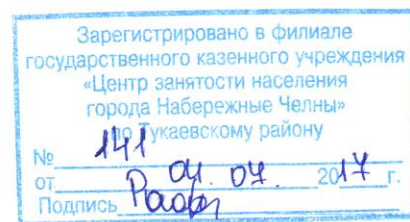 Зарегистрировано в филиале
государственного казенного учреждения
«Центр занятости населения
города Набережные Челны»
по Тукаевскому району
№ 141
от 04. 07. 2017 г.
Подпись